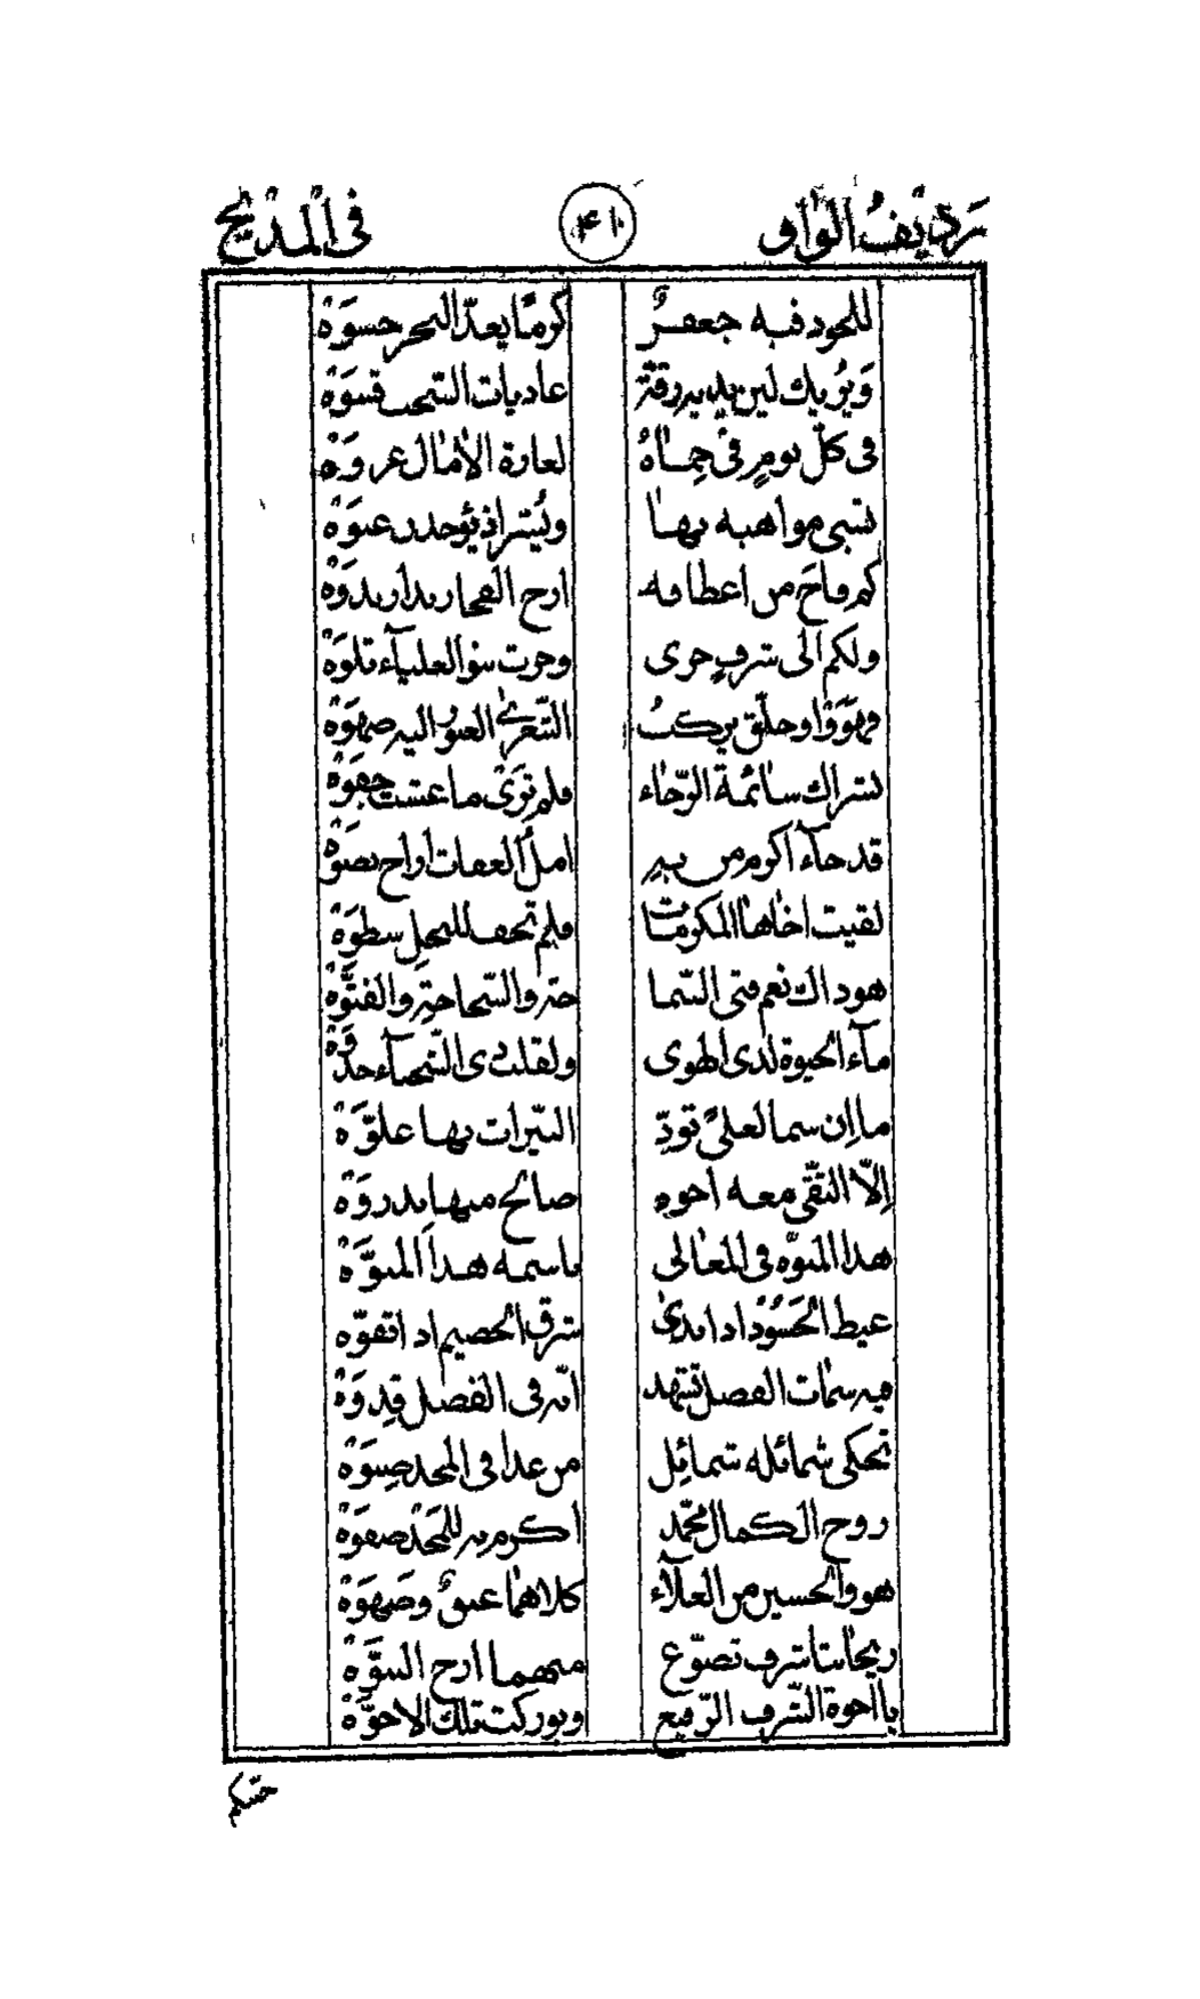 رديف الواو ٤١٠ في المديح
للجود فيه جعفر كرما يعد البحر حسوه
ويريك لين يديه رقة عاديات السحب قسوه
في كل يوم في حماه لغارة الآمال غروه
تسبي مواهبه بها عنوه
كم فاح من اعطافه ارج الفخار
ولكم الى شرف جرى وجرت بنو العلياء تلوه
وحلق يركب الشعرى العبور اليه صهوه
بشراك سائمة الرجاء فلم ترى ما عشت جفوه
قد جاء اكرم من به امل العفات اراح نضوه
لقيت اخاها المكرمات فلم تخف للبخل سطوه
هو ذاك نعم فتى السما حة والسماحة والفتوه
ماء الحيوة لدى الهوى ولقلب ذى الشحناء جذوه
ما ان سما لعلى تود النيرات بها علوه
الا التقى معه اخوه صالح منها بذروه
هذا المنوه في المعالى باسمه هذا المنوه
غيظ الحسود اذا ابتدى شرق الخصيم اذا تفوه
فيه سمات الفضل تشهد انه في الفضل قدوه
تحكى شمائله شمائل من غدا في المجد صنوه
روح الكمال محمد اكرم به للمجد صفوه
هو والحسين من العلآء كلاهما عنق وصهوه
ريحانتا شرف تضوع منهما ارج النبوه
يا اخوة الشرف الرفيع وبوركت تلك الاخوه